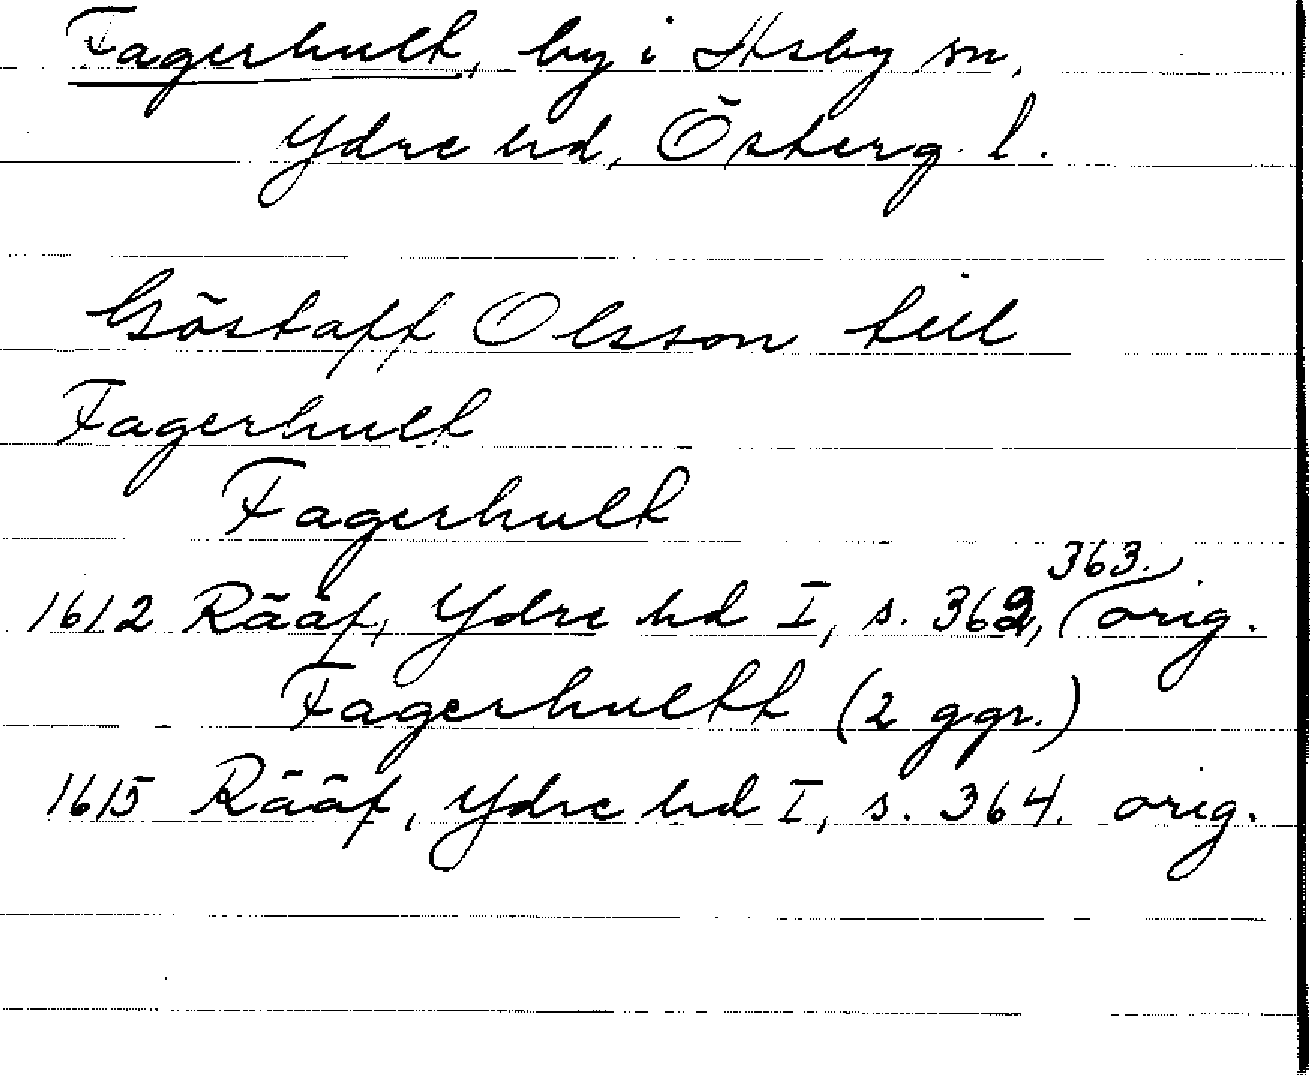 Fagerhult, by i Asby sn,
Ydre hd, Österg. l.
Göstaff Olsson till
Fagerhult
Fagerhult
363.
1612 Rääf, Ydre hd I, s. 362, orig.
Fagerhultt (2 ggr.)
1615 Rääf, Ydre hd I, s. 364. orig.